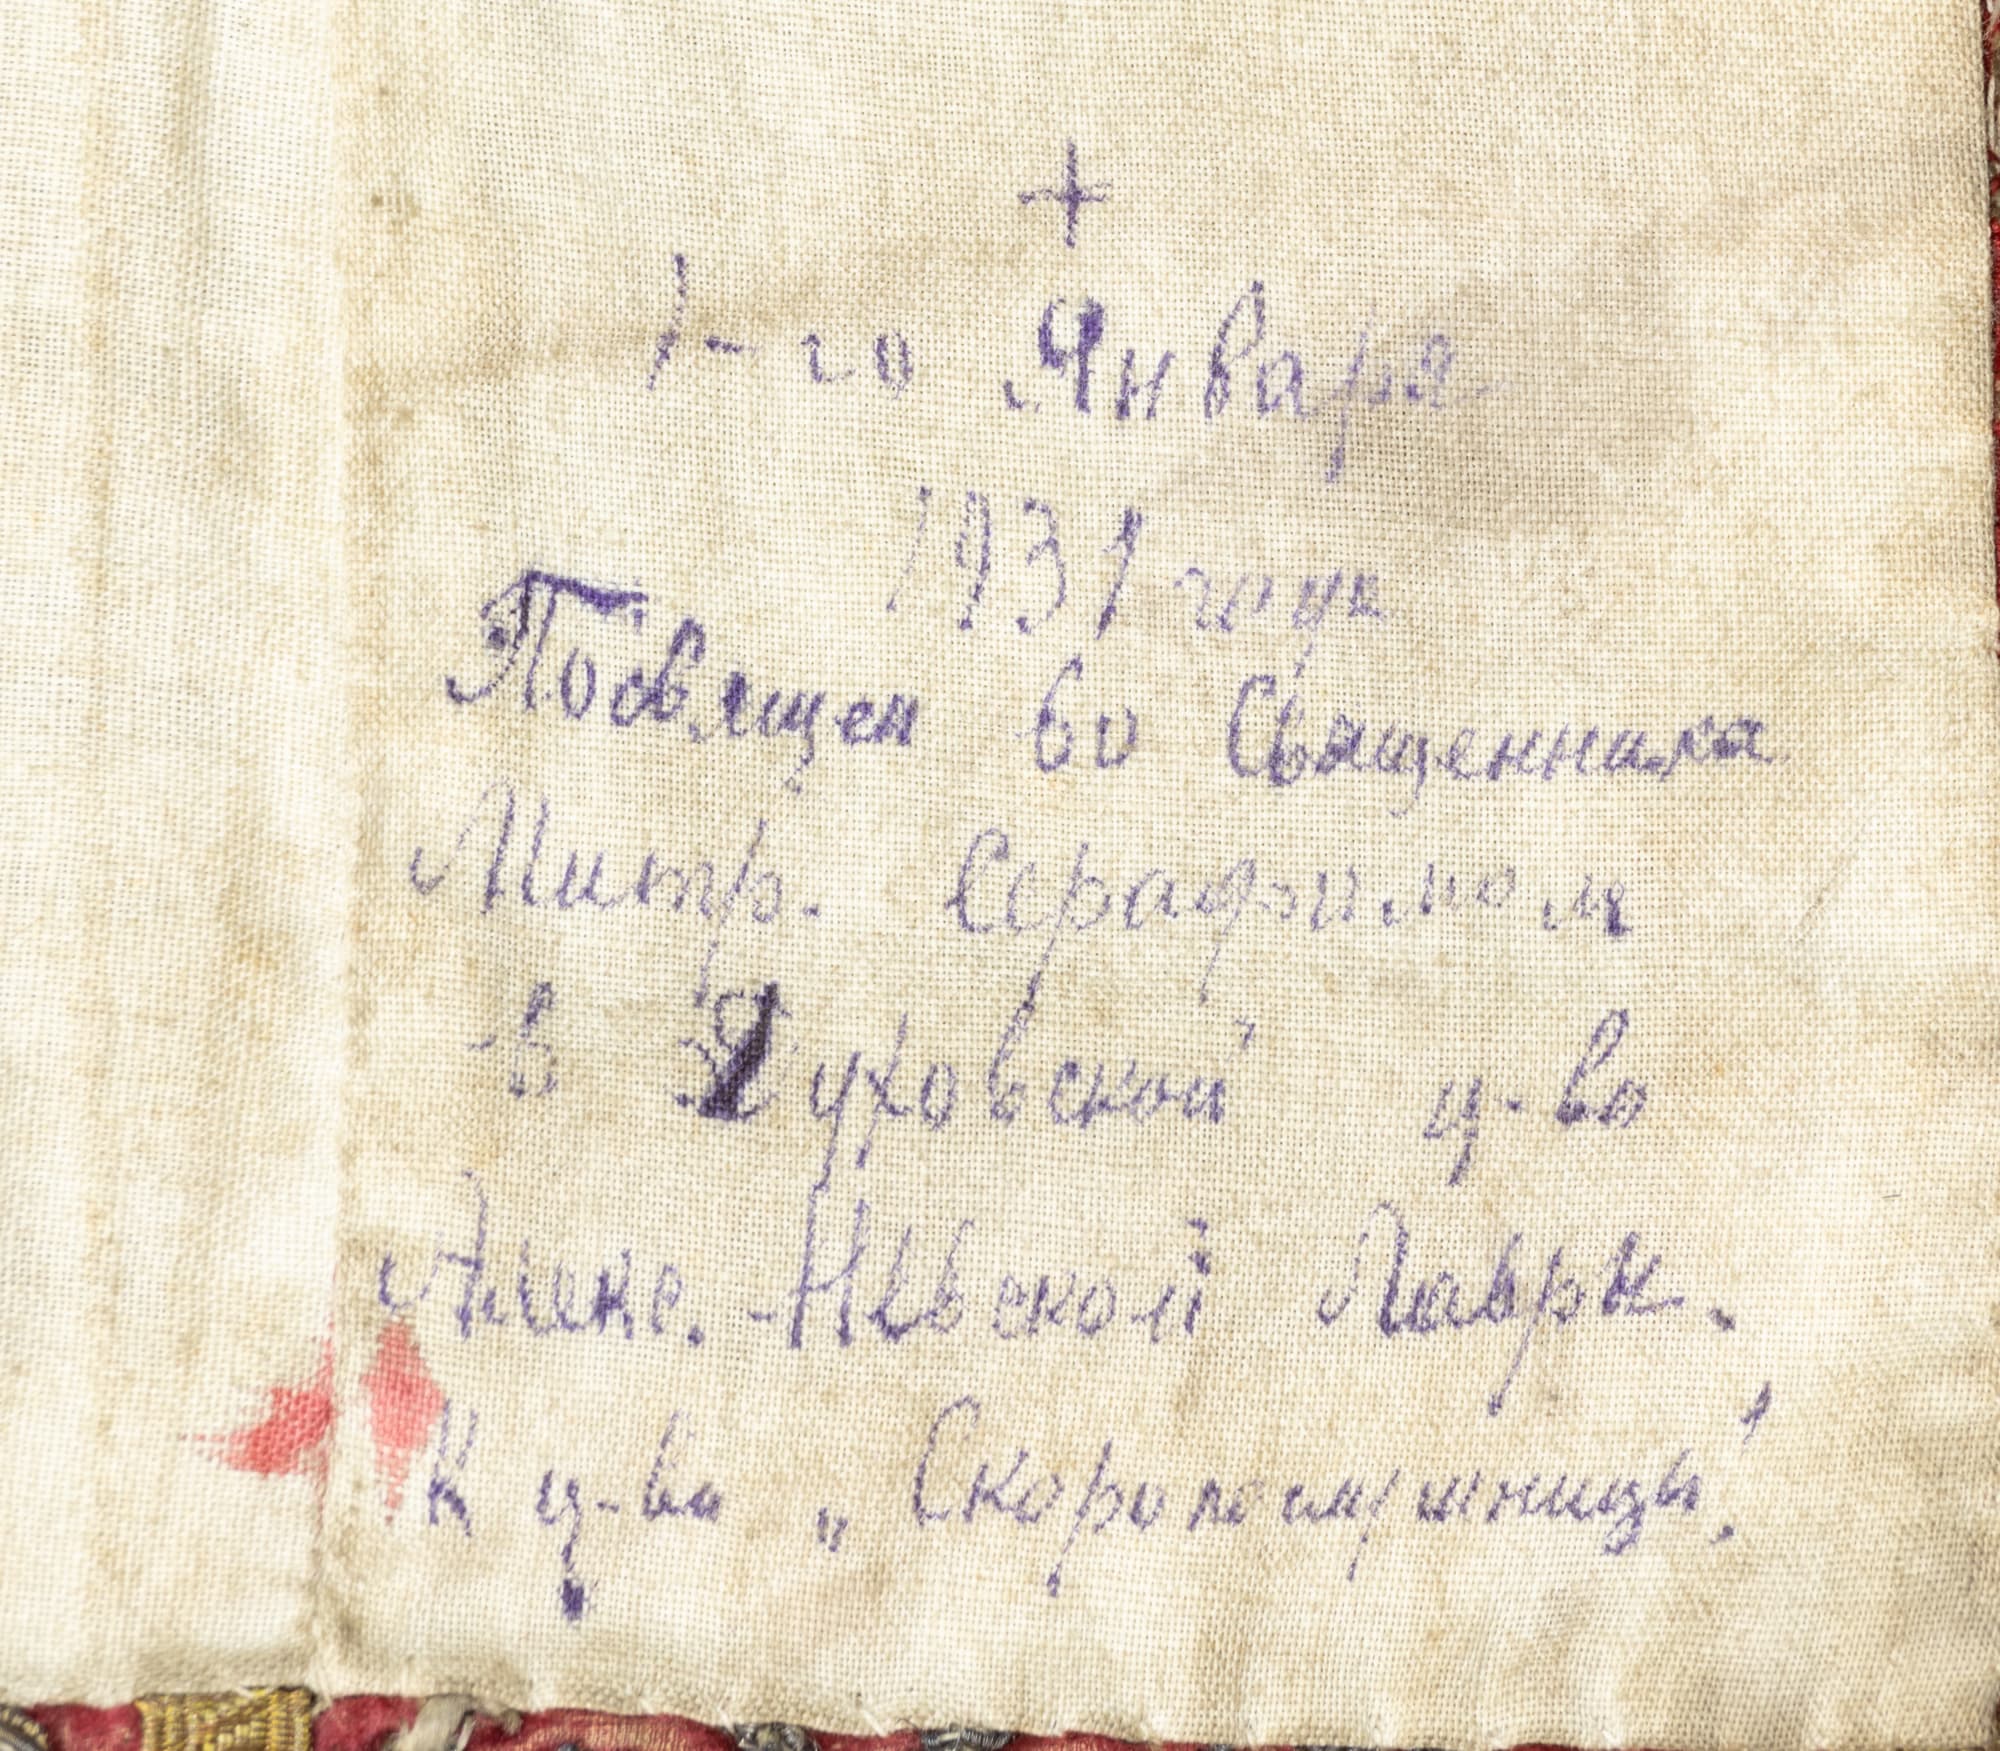 +
1-го Января
1931 года
Посвящен во Священника
Митр. Серафимом
в Духовской ц-во
Алекс.-Невской Лавры.
К ц-ви „Скоропомушницы“.